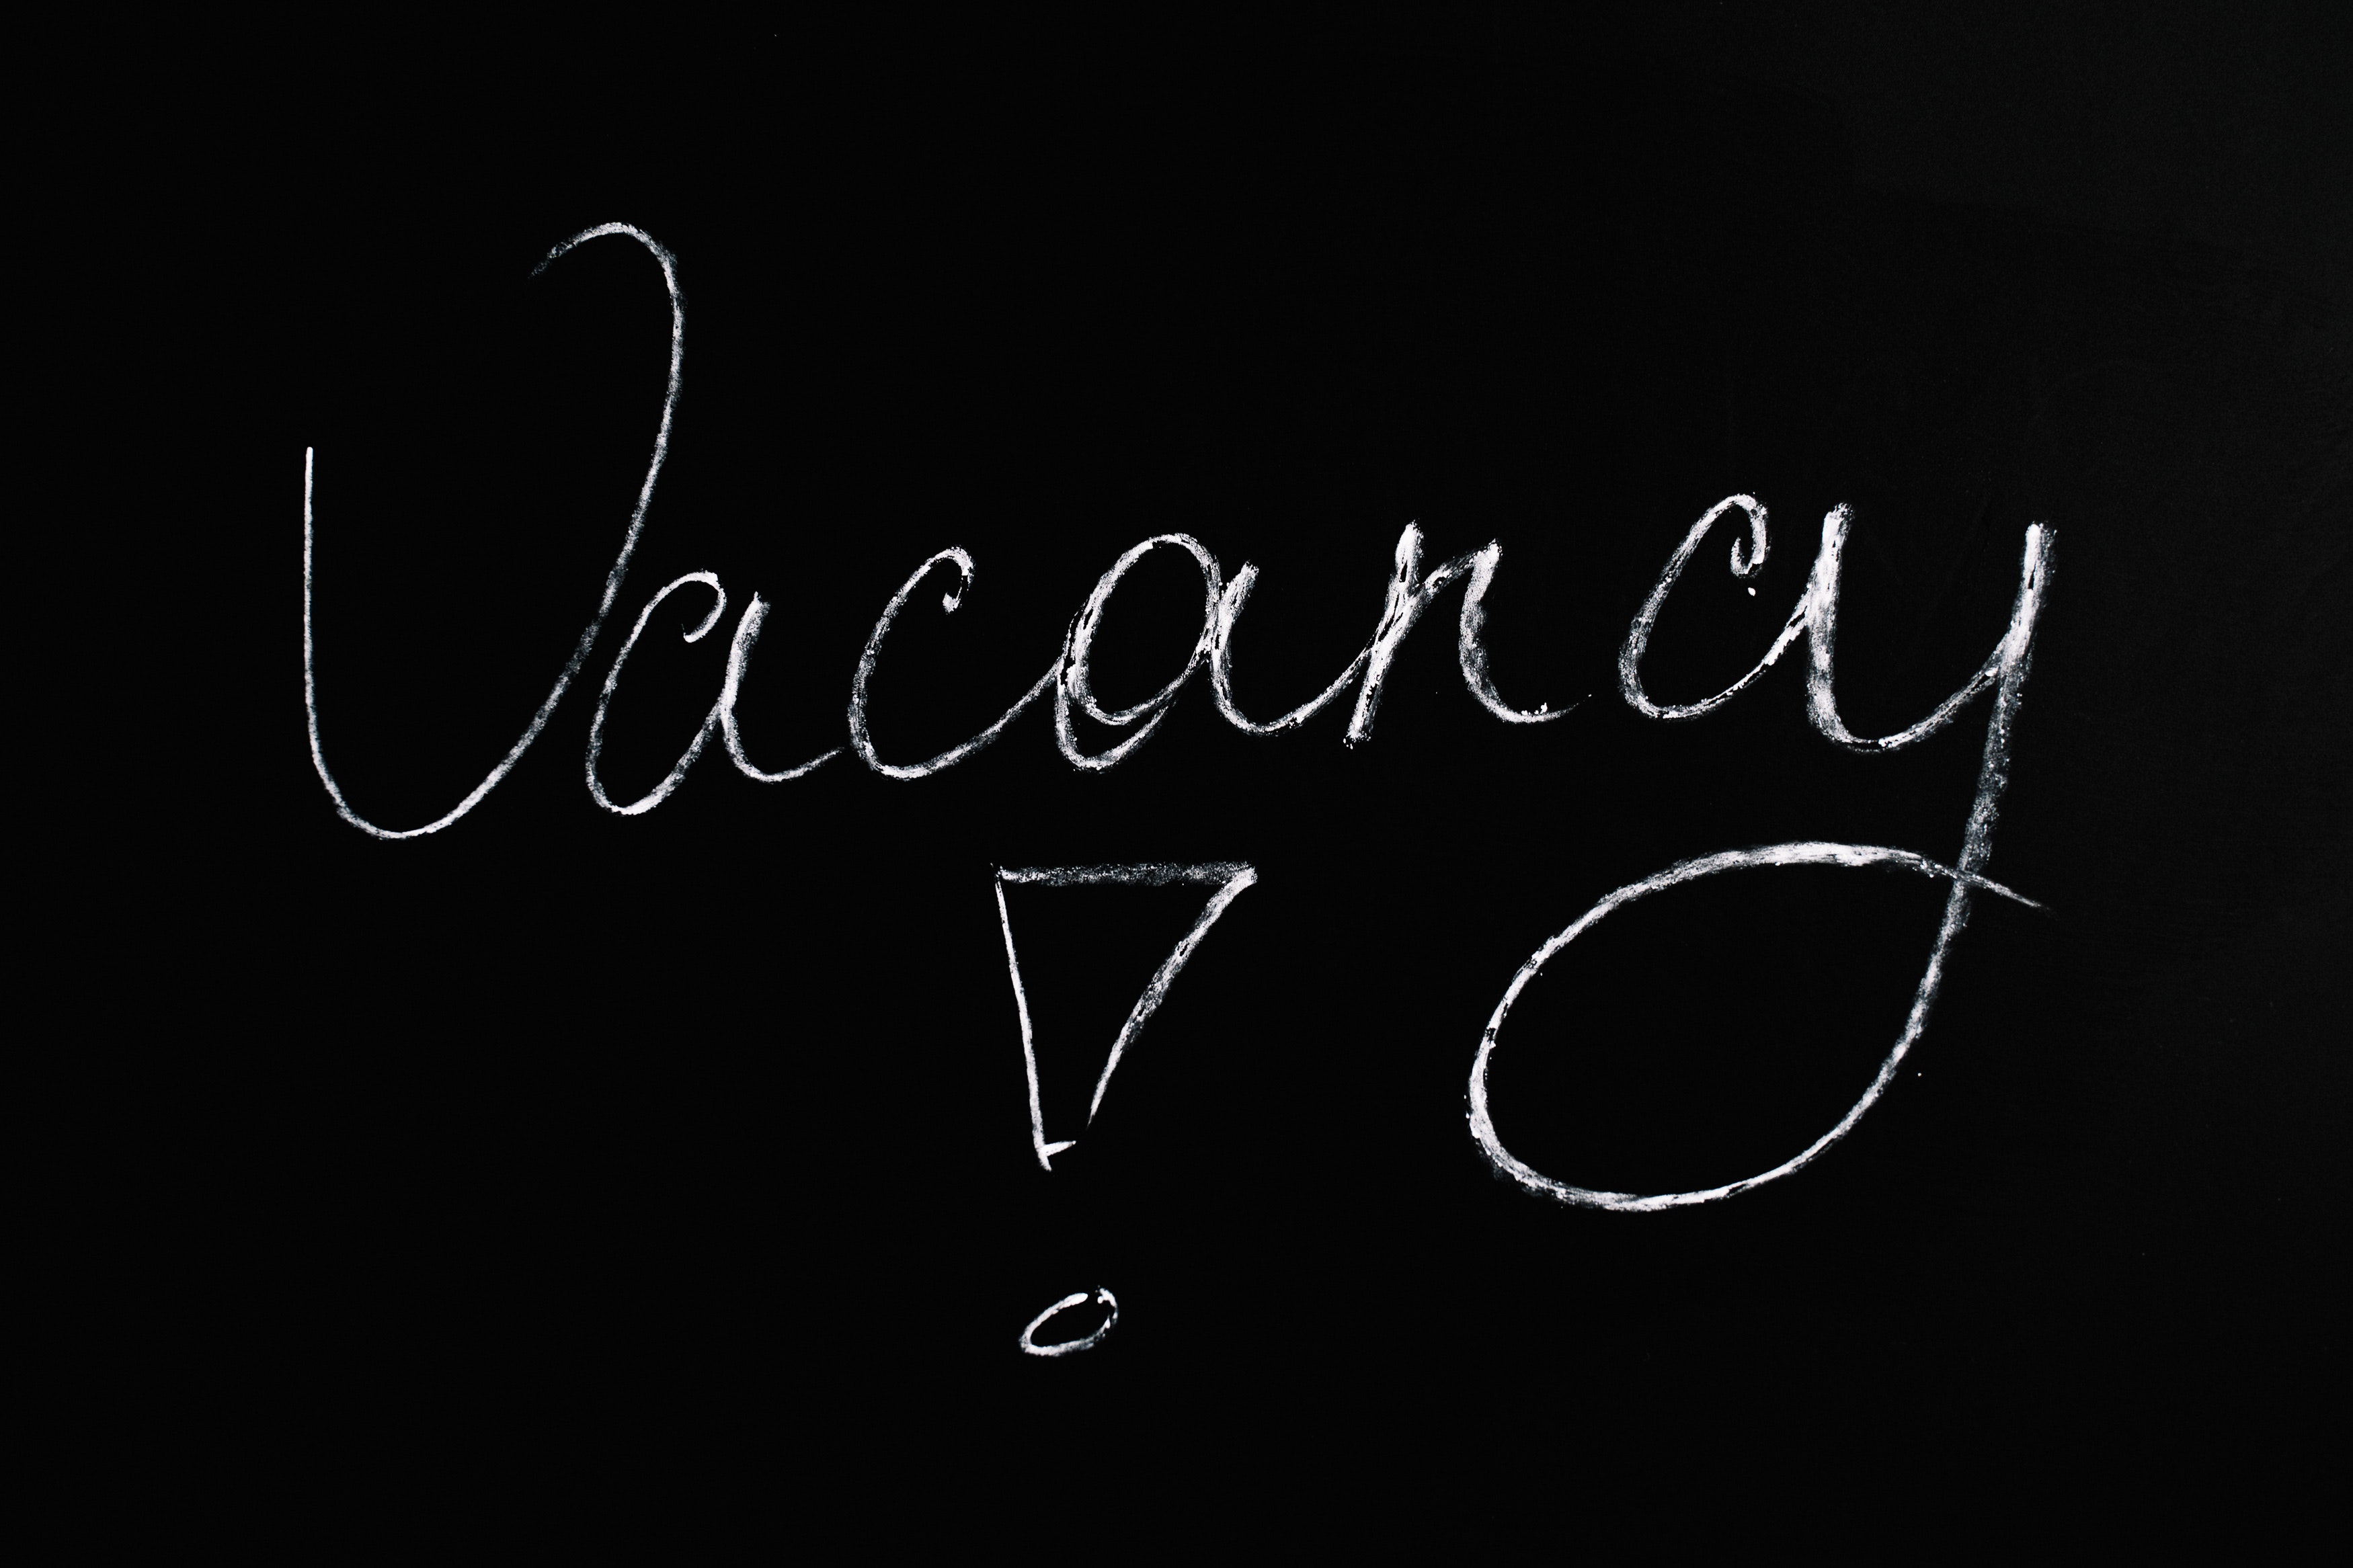 Vacancy
!